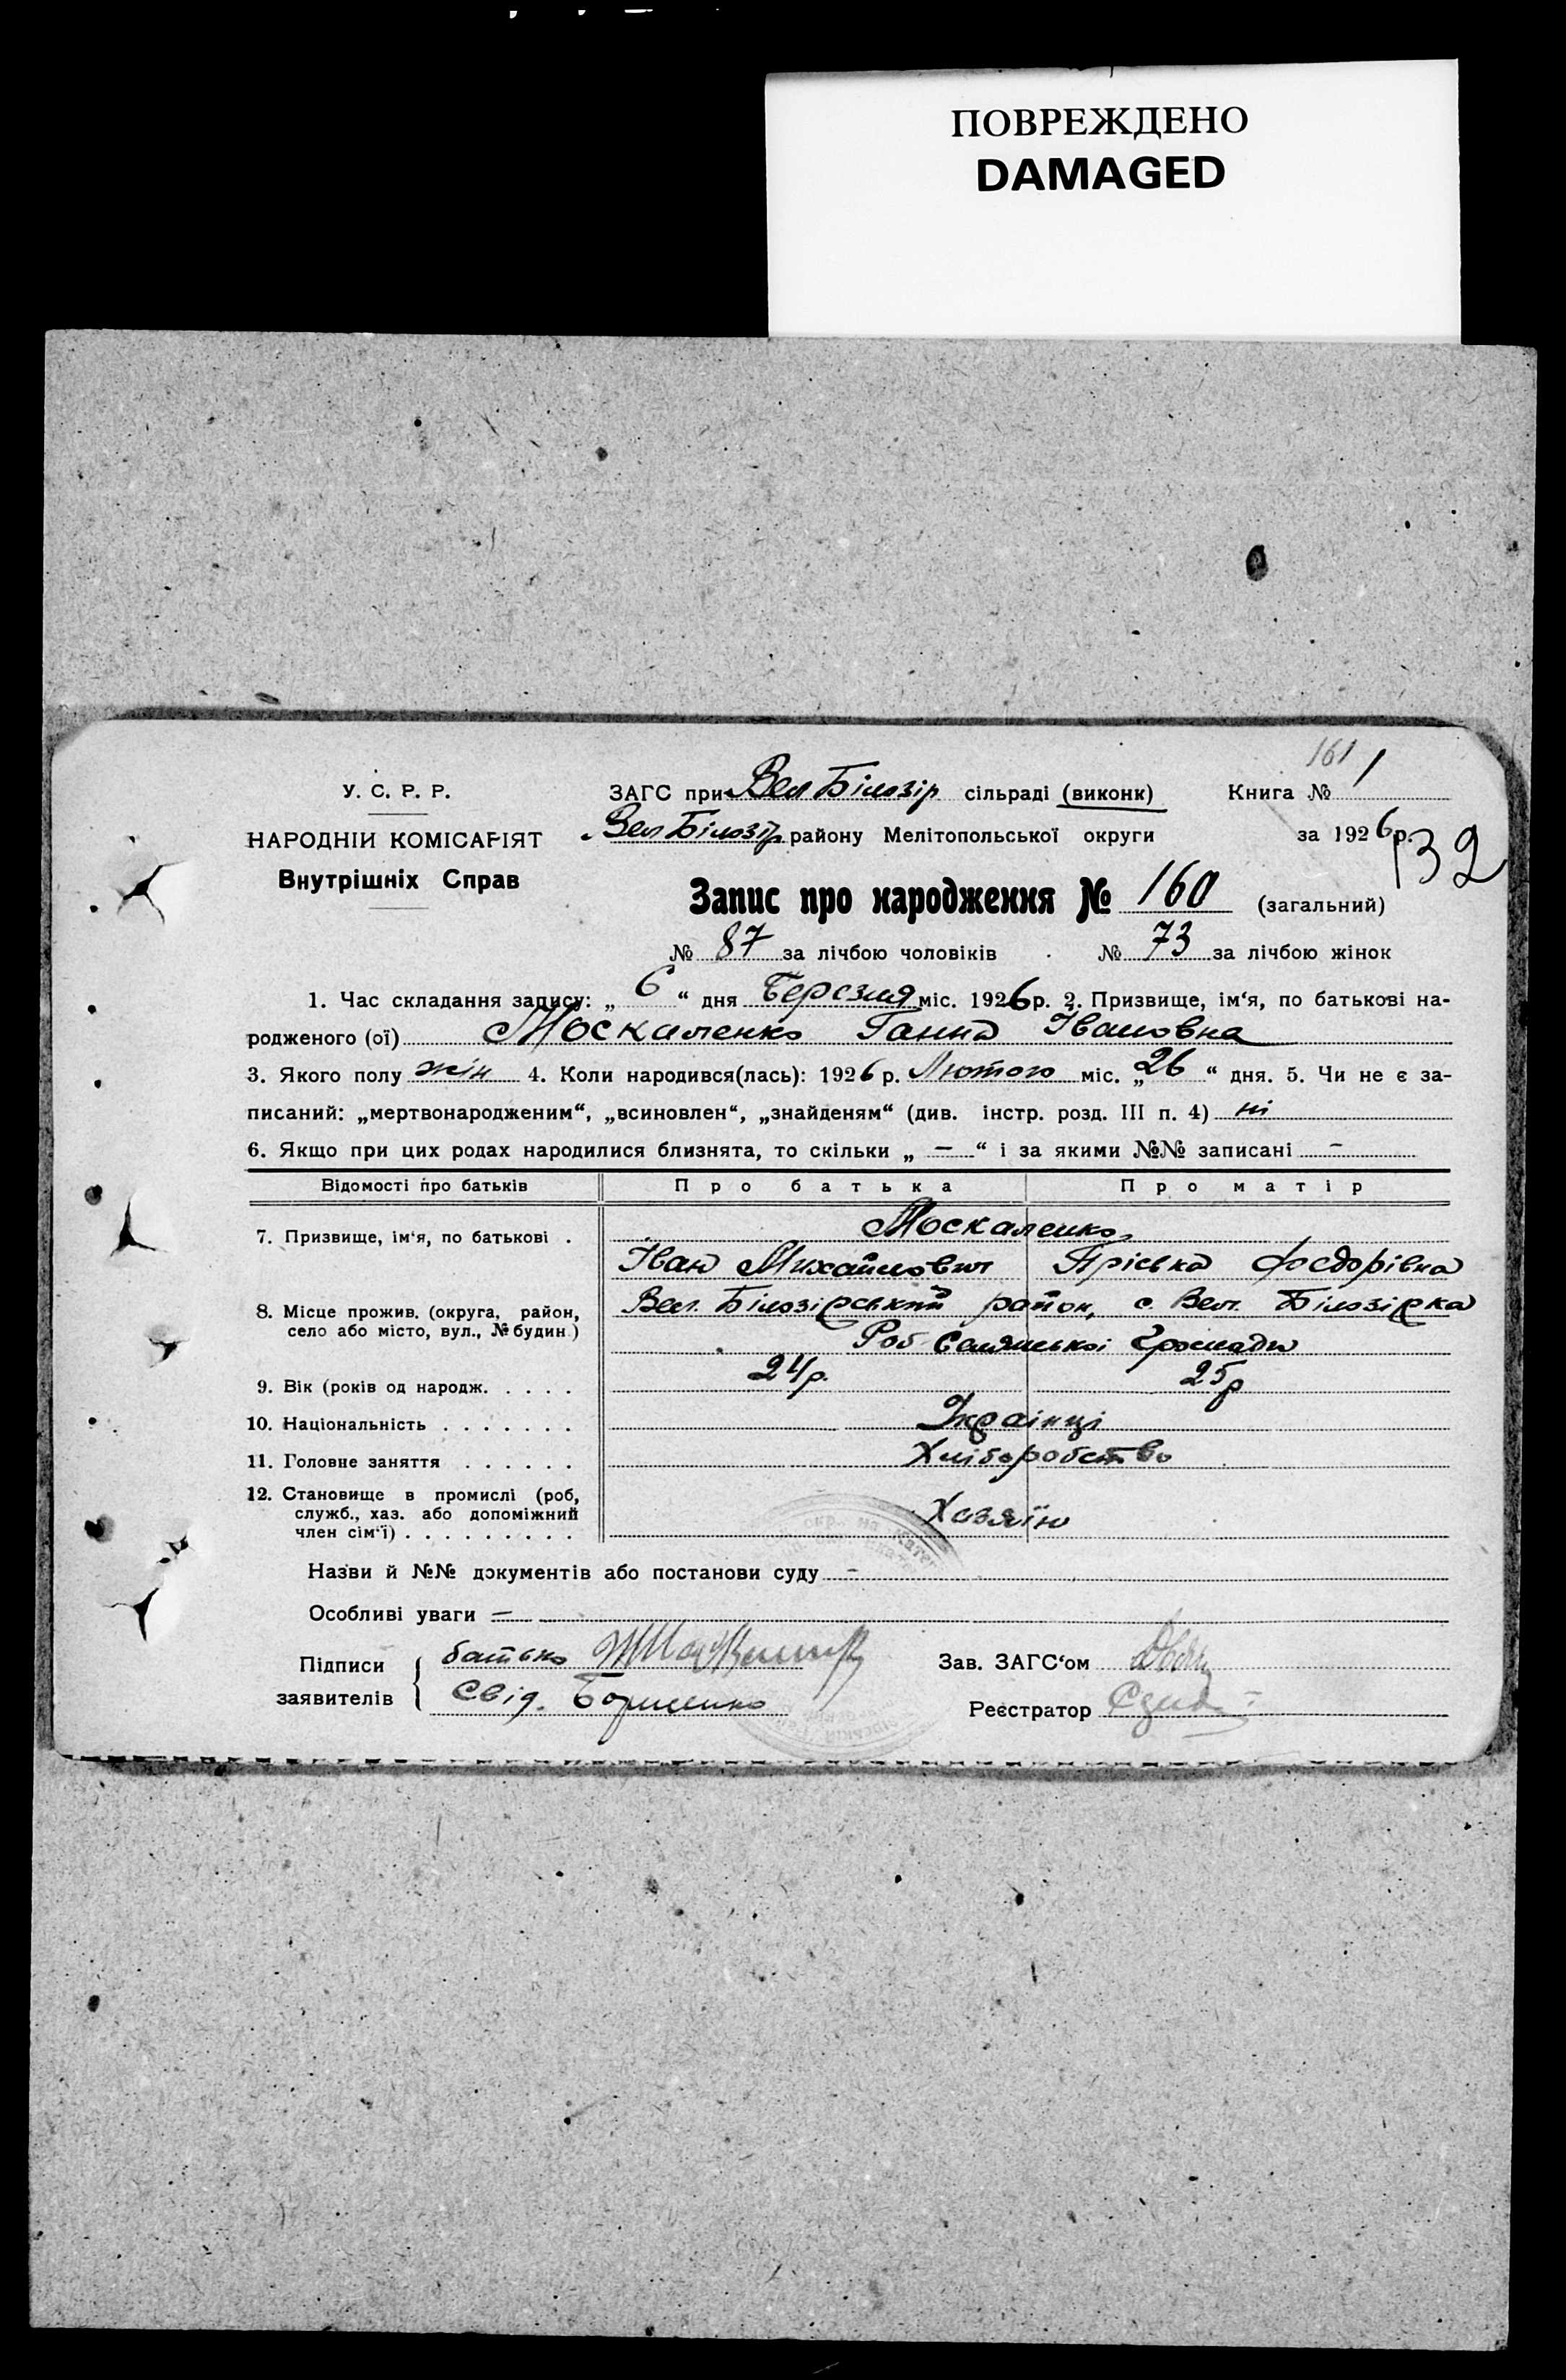 ПОВРЕЖДЕНО
DAMAGED
161 1
У. С. Р. Р.
ЗАГС при Вел Білозір сільраді (виконк) Книга №
НАРОДНІЙ КОМІСАРІЯТ
Вел Білозір району Мелітопольської округи за 1926 р.
132
Внутрішніх Справ
Запис про народження № 160 (загальний)
№ 87 за лічбою чоловіків № 73 за лічбою жінок
1. Час складання запису: „ 6 “ дня Березня міс. 1926 р. 2. Призвище, ім‘я, по батькові на-
родженого (ої) Москаленко Ганна Івановна
3. Якого полу жін 4. Коли народився(лась): 1926 р. Лютого міс. „ 26 “ дня. 5. Чи не є за-
писаний: „мертвонародженим“, „всиновлен“, „знайденям“ (див. інстр. розд. III п. 4) ні
6. Якщо при цих родах народилися близнята, то скільки „ — “ і за якими №№ записані —
Відомості про батьків Про батька Про матір
7. Призвище, ім‘я, по батькові . Москаленко
Іван Михайлович Пріська Федорівна
8. Місце прожив. (округа, район, село або місто, вул., № будин.) Вел. Білозірський район, с. Вел. Білозірка
Роб Селянської Громади
9. Вік (років од народж. . . . . 24р. 25р
10. Національність . . . . . . . Українці
11. Головне заняття . . . . . . Хліборобство
12. Становище в промислі (роб, служб., хаз. або допоміжний член сім‘ї) . . . . . . . . . Хазяїн
Назви й №№ документів або постанови суду —
Особливі уваги —
Підписи заявителів { батько
Свід.
Зав. ЗАГС‘ом
Реєстратор